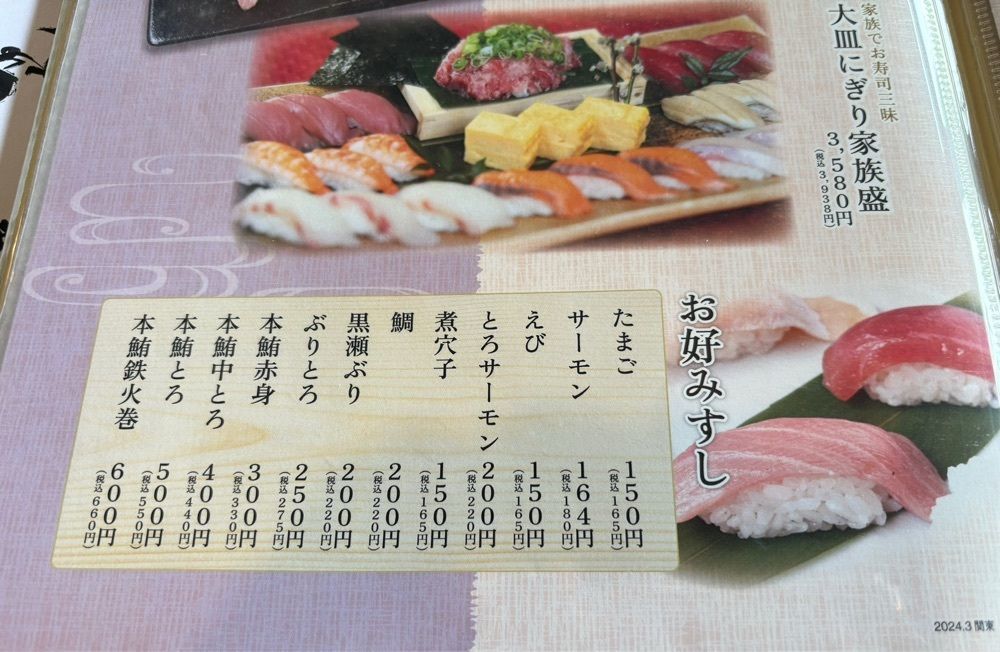 家族でお寿司三昧
大皿にぎり家族盛
3,580円
(税込3,938円)
お好みすし
たまご 150円 (税込165円)
サーモン 164円 (税込180円)
えび 150円 (税込165円)
とろサーモン 200円 (税込220円)
煮穴子 150円 (税込165円)
鯛 200円 (税込220円)
黒瀬ぶり 200円 (税込220円)
ぶりとろ 250円 (税込275円)
本鮪赤身 300円 (税込330円)
本鮪中とろ 400円 (税込440円)
本鮪とろ 500円 (税込550円)
本鮪鉄火巻 600円 (税込660円)
2024.3 関東